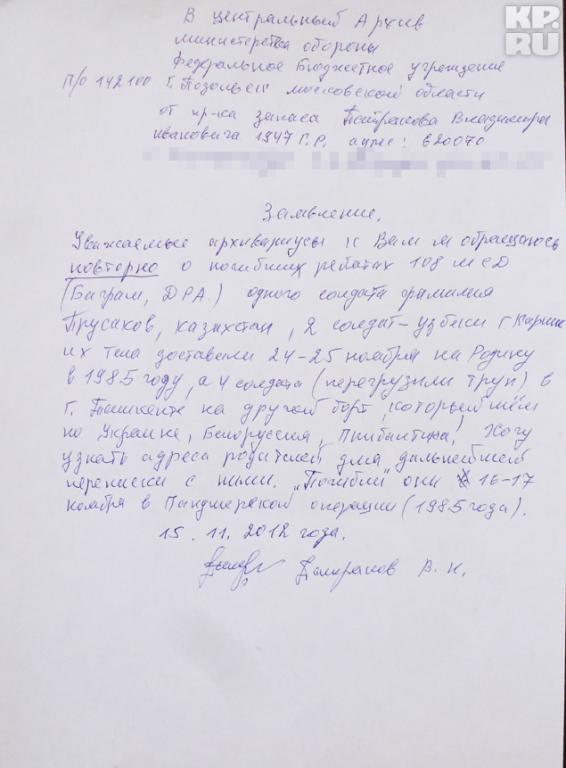 KP.
RU
В центральный Архив
министерства обороны
Федеральное Бюджетное учреждение
п/о 142100 г. Подольск московской области
от пр-ка запаса Патракова Владимира
Ивановича 1947 г.р. адрес: 620070
Заявление.
Уважаемые архивариусы к Вам я обращаюсь
повторно о погибших ребятах 108 мсд
(Баграм, ДРА.) одного солдата фамилия
Прусаков, Казахстан, 2 солдат-узбеки г. Карши
их тела доставели 24-25 ноября на Родину
в 1985 году, а 4 солдата (перегрузили труп) в
г. Ташкенте на другой борт, который шёл
по Украине, Белоруссия, Прибалтика! Хочу
узнать адреса родителей для дальнейшей
переписки с ними. "Погибли" они 16-17
ноября в Панджерской операции (1985 года).
15. 11. 2012 года.
В. И.